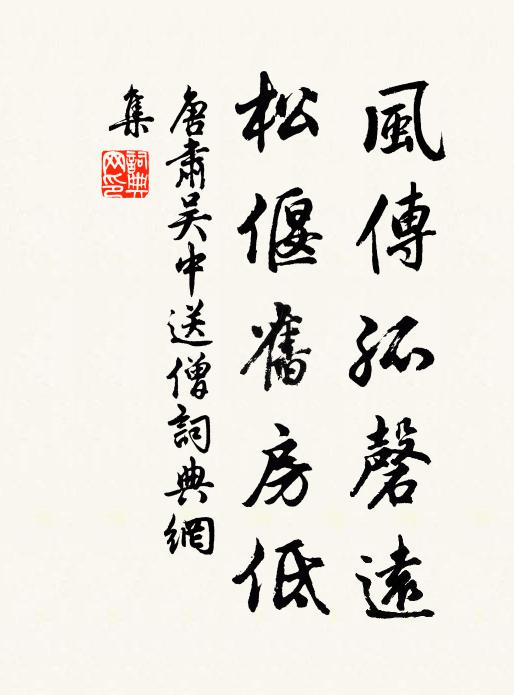 風傳孤磬遠
松偃舊房低
唐肅吳中送僧詞典網
集
詞典
网印